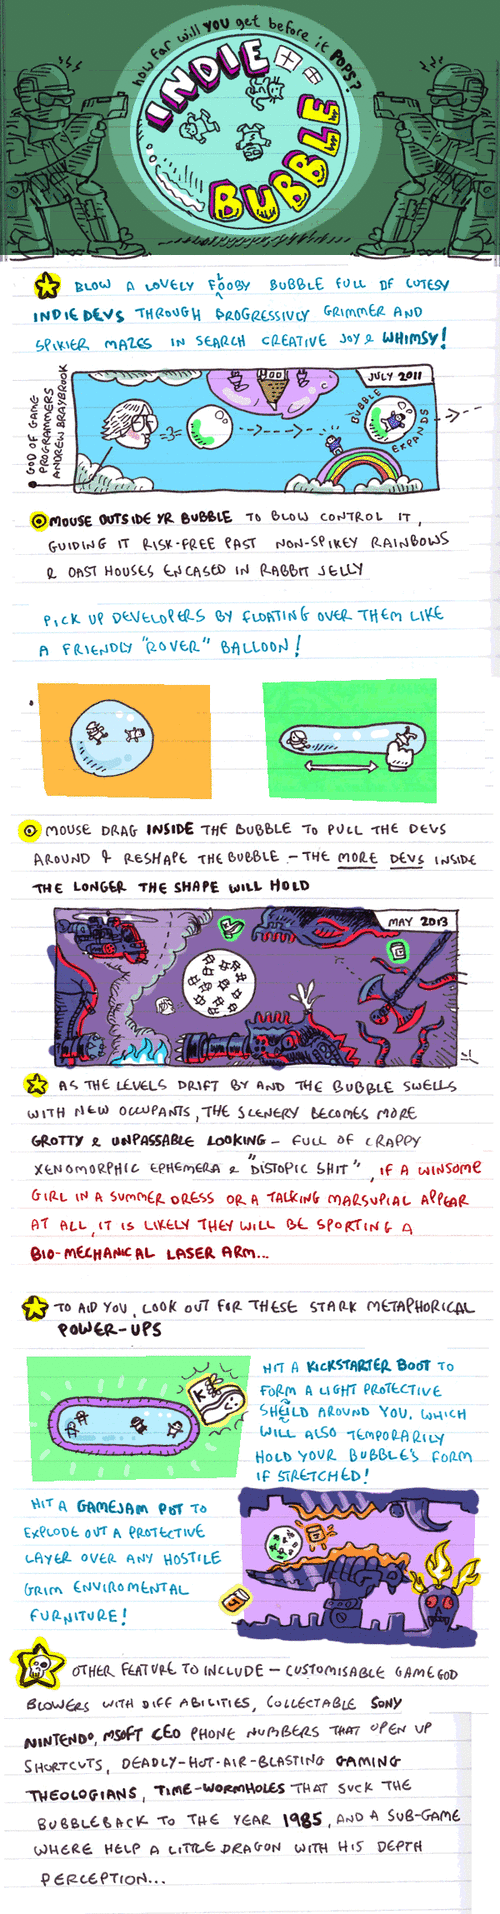 how far will YOU get before it POPS?
INDIE
BUBBLE
BLOW A LOVELY FLOOBY BUBBLE FULL OF CUTESY
INDIE DEVS THROUGH PROGRESSIVLY GRIMMER AND
SPIKIER MAZES IN SEARCH CREATIVE JOY & WHIMSY!
GOD OF GAME
PROGRAMMERS
ANDREW BRAYBROOK
JULY 2011
BUBBLE
EXPANDS
MOUSE OUTSIDE YR BUBBLE TO BLOW CONTROL IT,
GUIDING IT RISK-FREE PAST NON-SPIKEY RAINBOWS
& OAST HOUSES ENCASED IN RABBIT JELLY
PICK UP DEVELOPERS BY FLOATING OVER THEM LIKE
A FRIENDLY "ROVER" BALLOON!
MOUSE DRAG INSIDE THE BUBBLE TO PULL THE DEVS
AROUND & RESHAPE THE BUBBLE - THE MORE DEVS INSIDE
THE LONGER THE SHAPE WILL HOLD
MAY 2013
AS THE LEVELS DRIFT BY AND THE BUBBLE SWELLS
WITH NEW OCCUPANTS, THE SCENERY BECOMES MORE
GROTTY & UNPASSABLE LOOKING - FULL OF CRAPPY
XENOMORPHIC EPHEMERA & "DISTOPIC SHIT", IF A WINSOME
GIRL IN A SUMMER DRESS OR A TALKING MARSUPIAL APPEAR
AT ALL, IT IS LIKELY THEY WILL BE SPORTING A
BIO-MECHANICAL LASER ARM...
TO AID YOU, LOOK OUT FOR THESE STARK METAPHORICAL
POWER-UPS
K
HIT A KICKSTARTER BOOT TO
FORM A LIGHT PROTECTIVE
SHEILD AROUND YOU. WHICH
WILL ALSO TEMPORARILY
HOLD YOUR BUBBLE'S FORM
IF STRETCHED!
HIT A GAMEJAM POT TO
EXPLODE OUT A PROTECTIVE
LAYER OVER ANY HOSTILE
GRIM ENVIROMENTAL
FURNITURE!
J
OTHER FEATURE TO INCLUDE - CUSTOMISABLE GAMEGOD
BLOWERS WITH DIFF ABILITIES, COLLECTABLE SONY
NINTENDO, MSOFT CEO PHONE NUMBERS THAT OPEN UP
SHORTCUTS, DEADLY-HOT-AIR-BLASTING GAMING
THEOLOGIANS, TIME-WORMHOLES THAT SUCK THE
BUBBLEBACK TO THE YEAR 1985, AND A SUB-GAME
WHERE HELP A LITTLE DRAGON WITH HIS DEPTH
PERCEPTION...